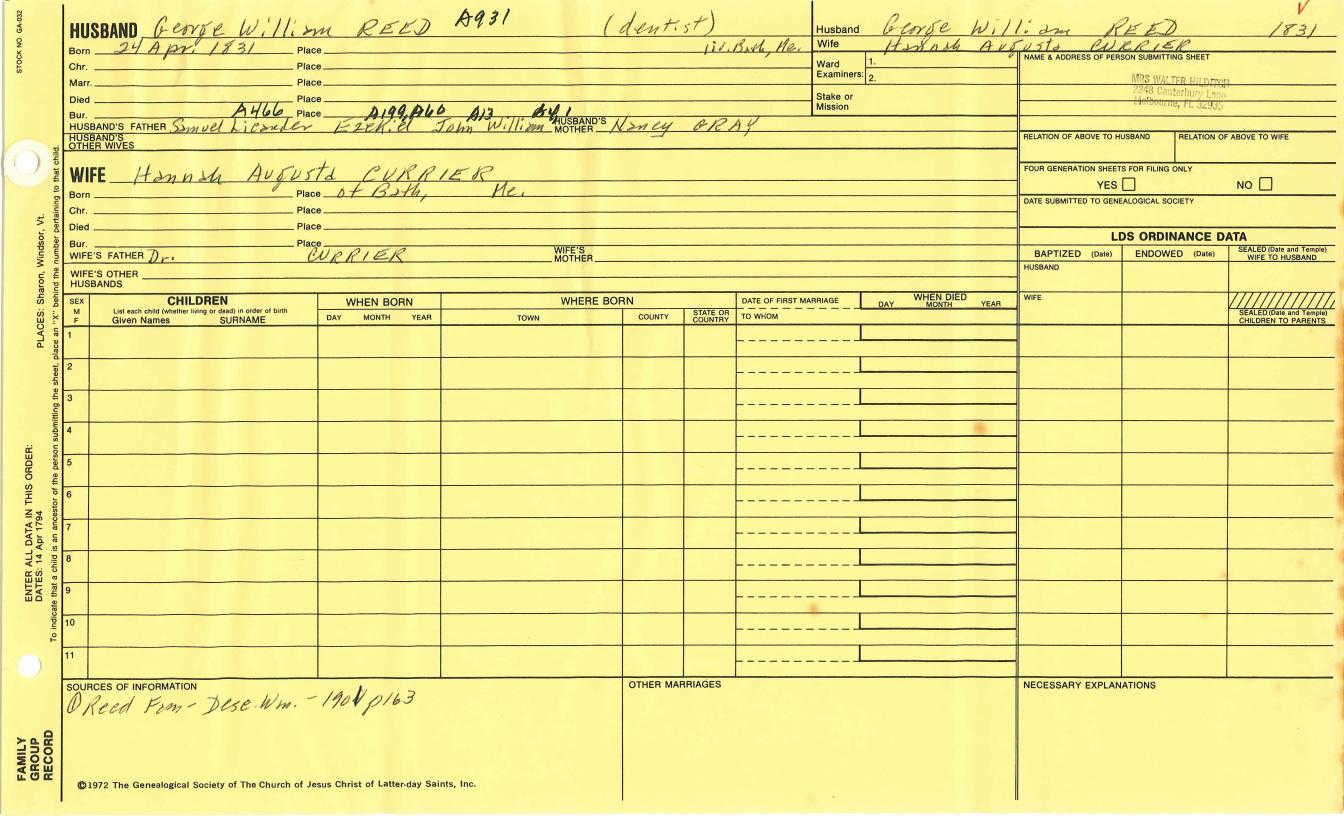 STOCK NO. GA-032
HUSBAND George William REED A931 (dentist)
Born 24 Apr. 1831 Place liv. Bath, Me.
Chr. Place
Marr. Place
Died Place
Bur. A466 Place A199, A60 A13
HUSBAND'S FATHER Samuel Licander Ezekiel John William HUSBAND'S MOTHER Nancy GRAY
HUSBAND'S OTHER WIVES
WIFE Hannah Augusta CURRIER
Born Place of Bath, Me.
Chr. Place
Died Place
Bur. Place
WIFE'S FATHER Dr. CURRIER WIFE'S MOTHER
WIFE'S OTHER HUSBANDS
Husband George William REED 1831
Wife Hannah Augusta CURRIER
Ward Examiners: 1.
2.
Stake or Mission
NAME & ADDRESS OF PERSON SUBMITTING SHEET
MRS WALTER HILDITCH
2248 Canterbury Lane
Melbourne, FL 32935
RELATION OF ABOVE TO HUSBAND RELATION OF ABOVE TO WIFE
FOUR GENERATION SHEETS FOR FILING ONLY
YES NO
DATE SUBMITTED TO GENEALOGICAL SOCIETY
LDS ORDINANCE DATA
BAPTIZED (Date) ENDOWED (Date) SEALED (Date and Temple) WIFE TO HUSBAND
HUSBAND
WIFE
SEALED (Date and Temple) CHILDREN TO PARENTS
SEX M F CHILDREN WHEN BORN WHERE BORN DATE OF FIRST MARRIAGE WHEN DIED
List each child (whether living or dead) in order of birth
Given Names SURNAME DAY MONTH YEAR TOWN COUNTY STATE OR COUNTRY TO WHOM DAY MONTH YEAR
1
2
3
4
5
6
7
8
9
10
11
SOURCES OF INFORMATION
① Reed Fam- Desc. Wm. - 1901 p163
OTHER MARRIAGES
NECESSARY EXPLANATIONS
©1972 The Genealogical Society of The Church of Jesus Christ of Latter-day Saints, Inc.
FAMILY GROUP RECORD
ENTER ALL DATA IN THIS ORDER:
DATES: 14 Apr 1794 PLACES: Sharon, Windsor, Vt.
To indicate that a child is an ancestor of the person submitting the sheet, place an "X" behind the number pertaining to that child.